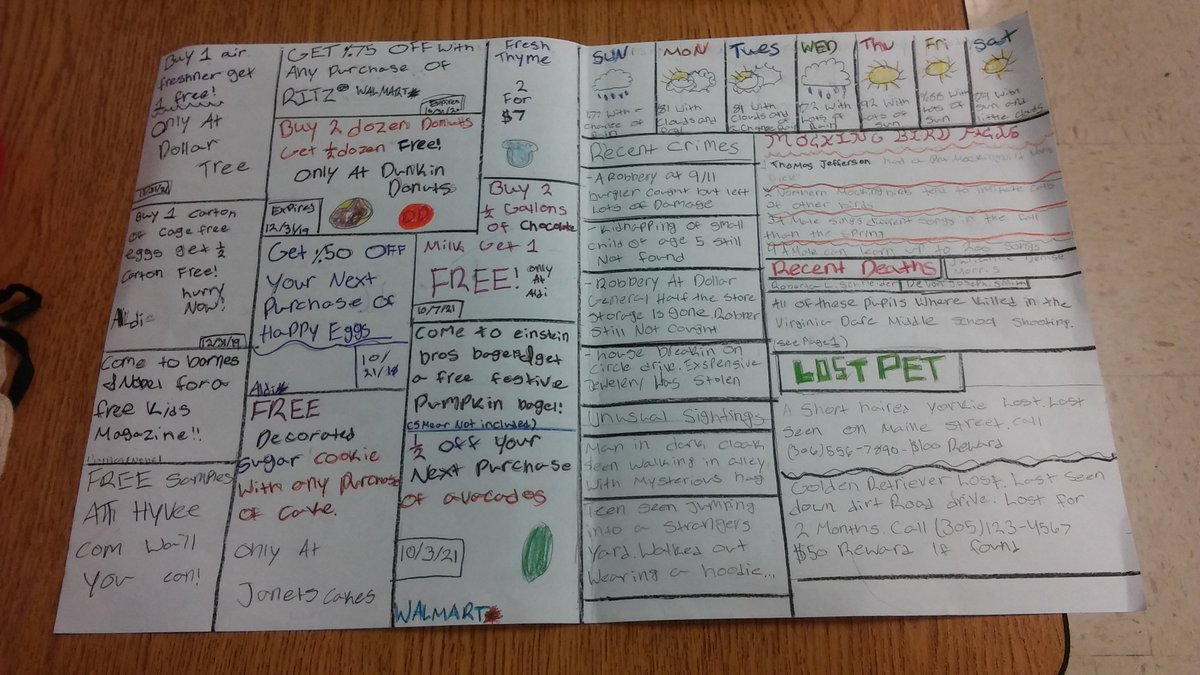 Buy 1 air
freshner get
1 free!
Only At
Dollar
Tree
GET %75 OFF With
Any Purchase OF
RITZ WALMART
Expires
Buy 2 dozen Donuts
Get ½ dozen Free!
Only At Dunkin
Donuts
Expires
12/31/19
D.D
Fresh
Thyme
2
For
$7
Buy 1 carton
of cage free
eggs get ½
carton Free!
hurry
Now!
Aldis
12/31/19
Get %50 OFF
Your Next
Purchase OF
Happy Eggs
10/
Aldi
Buy 2
½ Gallons
of Chocolate
Milk Get 1
FREE! only
At
Aldi
10/7/21
Come to barnes
& Nobel for a
free Kids
Magazine!!
Come to einstein
bros bagel and get
a free festive
Pumpkin bagel!
(Smear Not included)
FREE Samples
At Hyvee
Com
You can!
FREE
Decorated
sugar cookie
With any Purchase
of Cake.
only At
Janets cakes
½ off your
Next Purchase
of avocados
10/3/21
WALMART
SUN
MON
Tues
WED
Thu
Fri
Sat
77 With
Chance of
Rain
81 With
Clouds and
81 With
Clouds and
Chance
72 With
Lots of
Rain
92 With
Lots of
Sun
%88 With
Lots of
Sun
79 With
Sun and
little clouds
Recent Crimes
- A Robbery at 9/11
burgler caught but left
Lots of Damage
- Kidnapping of small
Child of age 5 still
Not found
- Robbery At Dollar
General Half the Store
Storage Is gone. Robber
Still Not Caught
- house breakin on
Circle drive. Exspensive
Jewelery Was Stolen
Unusual Sightings
Man in dark cloak
seen walking in alley
With Mysterious bag
Teen seen Jumping
into a strangers
Yard. Walked out
Wearing a hoodie...
MOCKING BIRD FACTS
Thomas Jefferson had a Pet Mockingbird
Dick
Northern Mockingbirds tend to imitate
of other birds
Male sings different songs in the fall
than the spring
Male can learn up to 200 songs
Recent Deaths
Denise
Morris
Ronarda L. Schneider
Devon Joseph Smith
All of these Pupils Where Killed in the
Virginia Dare Middle School Shooting.
(see Page 1)
LOST PET
A Short haired yorkie Lost. Last
Seen on Maille Street. Call
(306)556-7890. Reward
Golden Retriever Lost. Last Seen
down dirt Road drive. Lost for
2 Months. Call (305)123-4567
$50 Reward If found